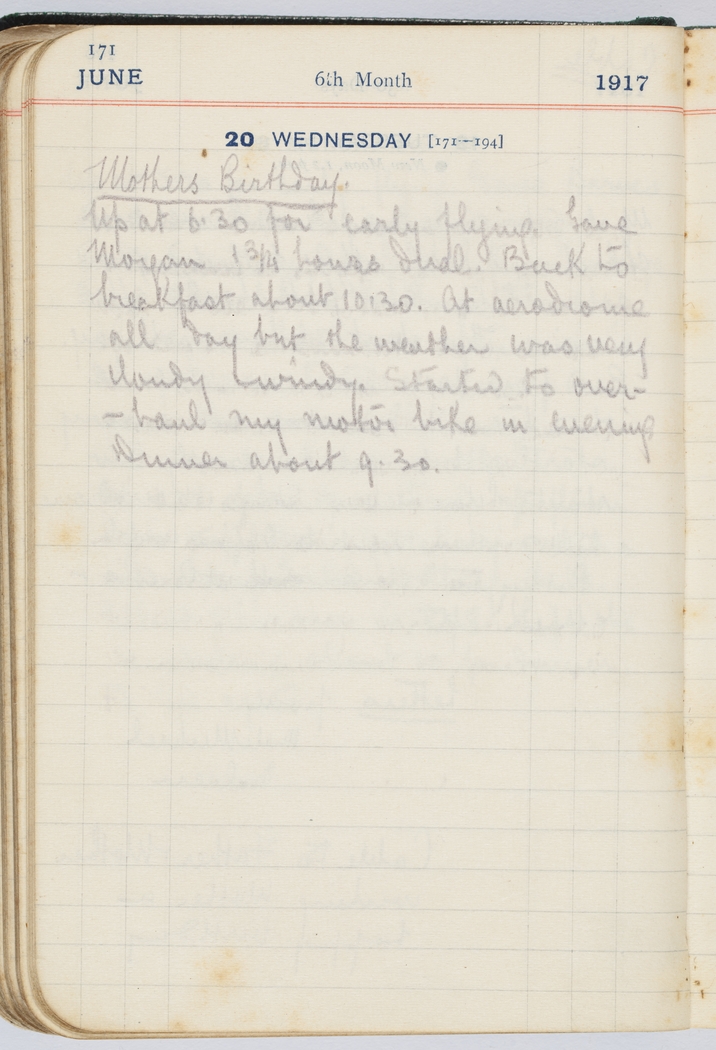 171
JUNE 6th Month 1917
20 WEDNESDAY [171—194]
Mothers Birthday.
Up at 6.30 for early flying. Gave
Morgan 1 3/4 hours dual. Back to
breakfast about 10.30. At aerodrome
all day but the weather was very
cloudy & windy. Started to over-
-haul my motor bike in evening
Dinner about 9.30.